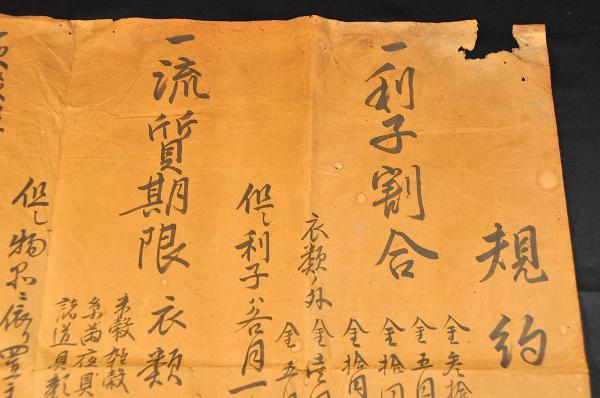 規約
一利子割合
金参拾
金五円
金拾円
金拾円
衣類ノ外
金壱円
金五
但シ利子ハ各月一
一流質期限 衣類
米穀雑穀
糸茵夜具
諸道具類
但シ物品ニ依リ置主